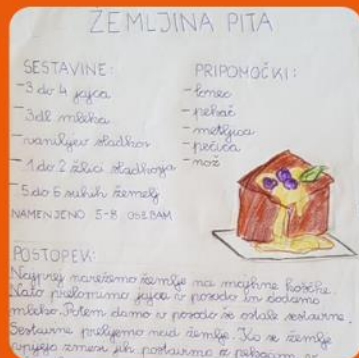 ŽEMLJINA PITA
SESTAVINE:
-3 do 4 jajca
-3dl mleka
-vanilijev sladkor
-1 do 2 žlici sladkorja
-5 do 6 suhih žemelj
NAMENJENO 5-8 OSEBAM
PRIPOMOČKI:
-lonec
-pekač
-metljica
-pečica
-nož
POSTOPEK:
Najprej narežemo žemlje na majhne koščke.
Nato prelomimo jajca v posodo in dodamo
mleko. Potem damo v posodo še ostale sestavine.
Sestavine prelijemo nad žemlje. Ko se žemlje
vpijejo zmesi jih postavimo